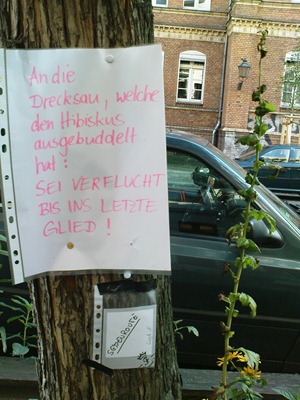 An die
Drecksau, welche
den Hibiskus
ausgebuddelt
hat:
SEI VERFLUCHT
BIS INS LETZTE
GLIED !